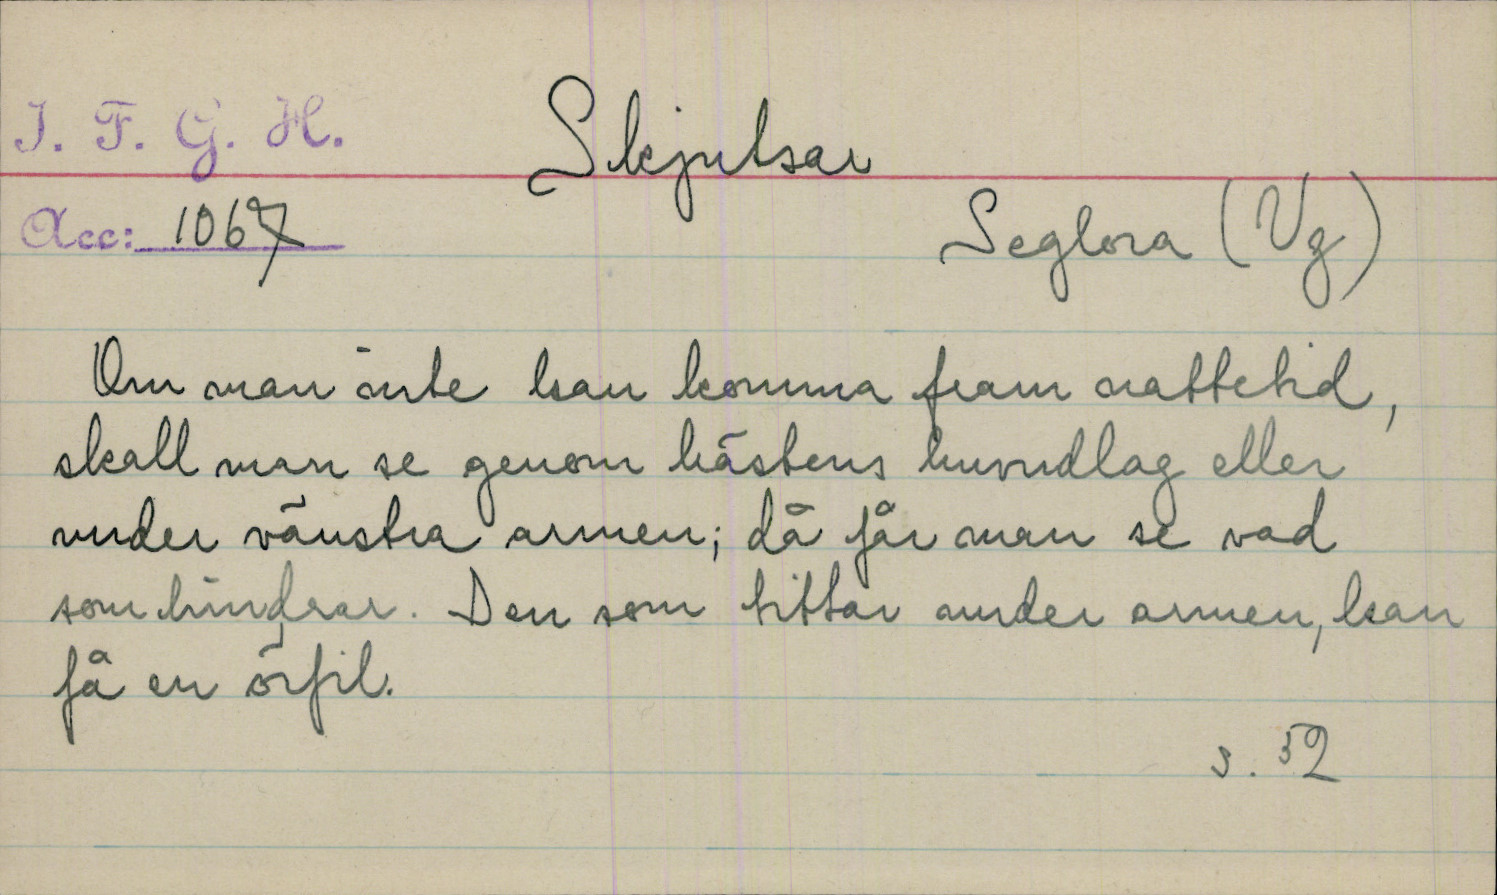 I. F. G. H.
Skjutsar
Acc: 1067
Seglora (Vg)
Om man inte kan komma fram nattetid,
skall man se genom hästens huvudlag eller
under vänstra armen; då får man se vad
som hindrar. Den som tittar under armen, kan
få en örfil.
s. 52